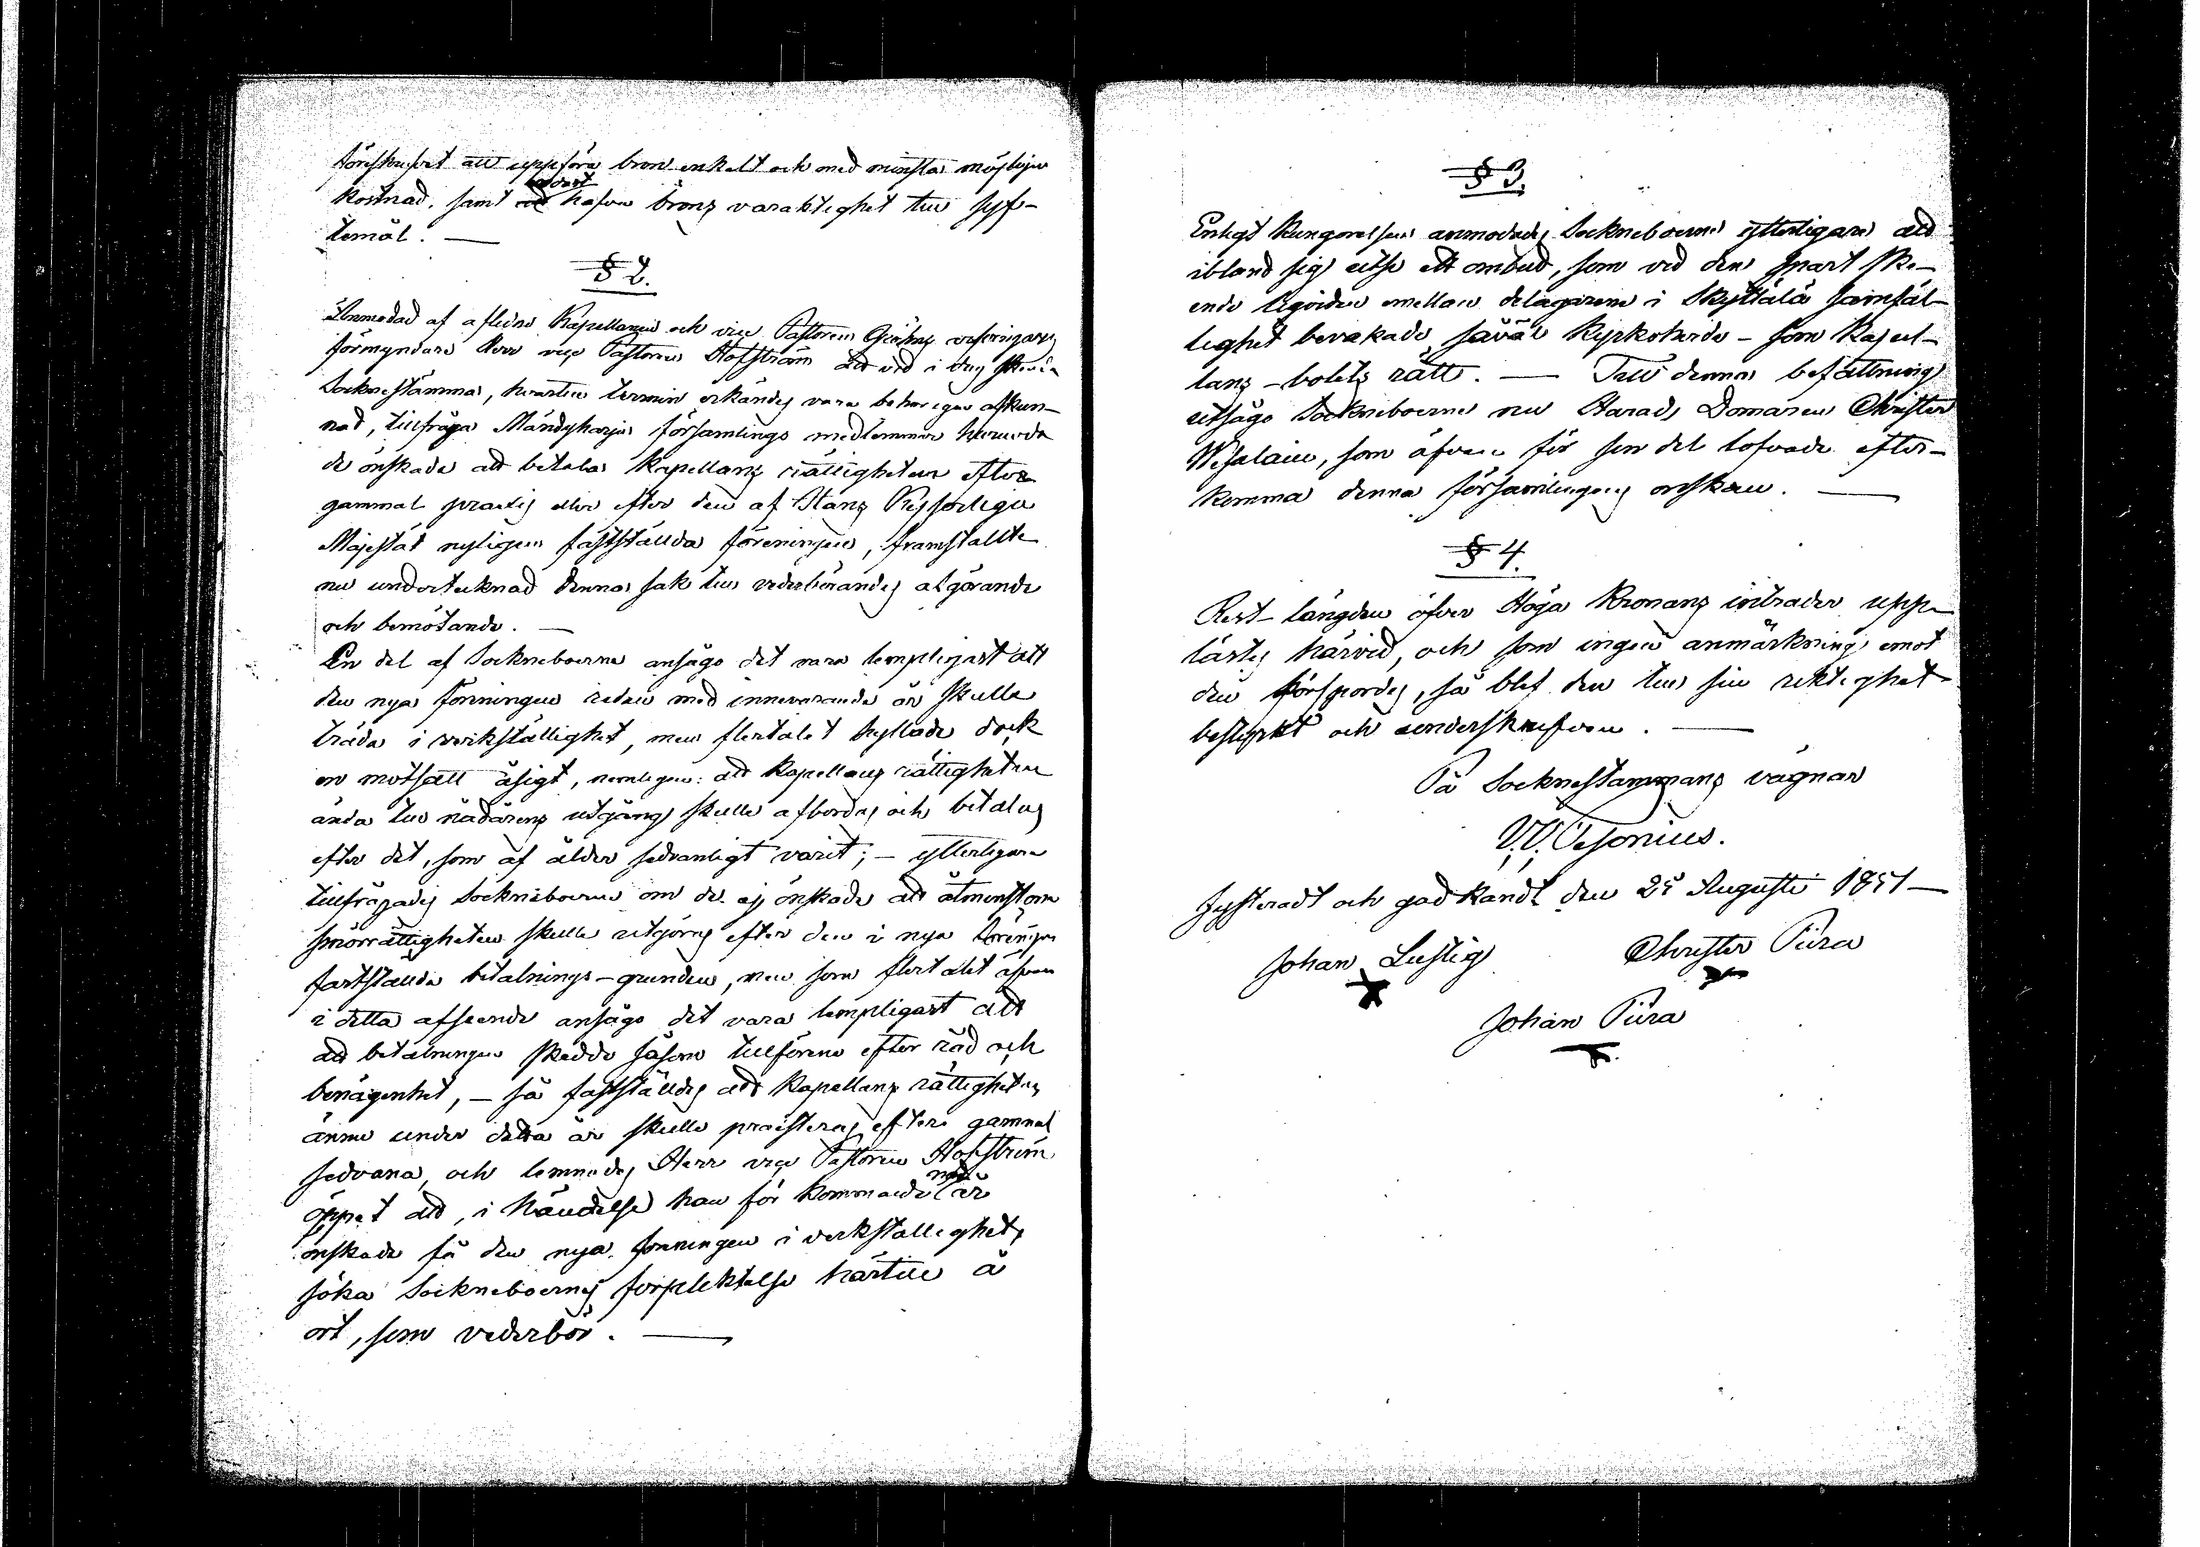 föreskrefvet att uppföra bron enkelt och med minsta möjliga
kostnad, samt hafva brons varaktighet till syf-
temål. —
§ 2.
Anmodad af aflidne Kapellanen och vice Pastoren
förmyndare Herr vice Pastoren Hofström att vid i dag
Socknestämma, hvartill termin erkändes vara behörigen afkun-
nad, tillfråga Mändyharju församlings medlemmar huruvida
de önskade att betala Kapellans rättigheten efter
gammal praxis eller efter den af Hans Kejserliga
Majestät nyligen fastställda föreningen, framställte
nu undertecknad denna sak till vederbörandes afgörande
och bemötande. —
En del af Sockneboerne ansågo det vara lempligast att
den nya föreningen redan med innevarande år skulle
träda i verkställighet, men flertalet hyllade dock
en motsatt åsigt, nemligen: att Kapellans rättigheten
ända till nådårens utgång skulle afbördas och betalas
efter det, som af ålder sedvanligt varit; — ytterligare
tillfrågades Sockneboerne om de ej önskade att åtminstone
smörrättigheten skulle utgöras efter den i nya föreningen
fastställda betalnings-grunden, men som flertalet äfven
i detta afseende ansågo det vara lempligast att
att betalningen skedde såsom tillförene efter råd och
benägenhet, — så fastställdes att Kapellans rättigheten
ännu under detta år skulle praesteras efter gammal
sedvana, och lemnades Herr vice Pastoren Hofström
öppet att, i händelse han för kommande nåd år
önskade få den nya föreningen i verkställighet,
söka Sockneboernes förplicktelse härtill å
ort, som vederbör. —
§ 3.
Enligt kungörelsen anmodades Sockneboerne ytterligare att
ibland sig utse ett ombud, som vid den snart ske-
ende egoredn emellan delägarena i Skyttälä samfäl-
lighet bevakade såväl Kyrkoherde- som Kapel-
lans-bolets rätt. — Till denna befattning
utsågo Sockneboerne nu Härads Domaren Christer
Wesalain, som äfven för sin del lofvade efter-
komma denna församlingens önskan. —
§ 4.
Rest-längden öfver Höga Kronans intrader upp-
lästes härvid, och som ingen anmärkning emot
den försspordes, så blef den till sin riktighet
bestyrkt och underskrefven. —
På Socknestammans vägnar
W. Vesonius.
Justeradt och godkändt den 25 Augusti 1851 —
Johan Lustig Christer Pura
Johan Pura